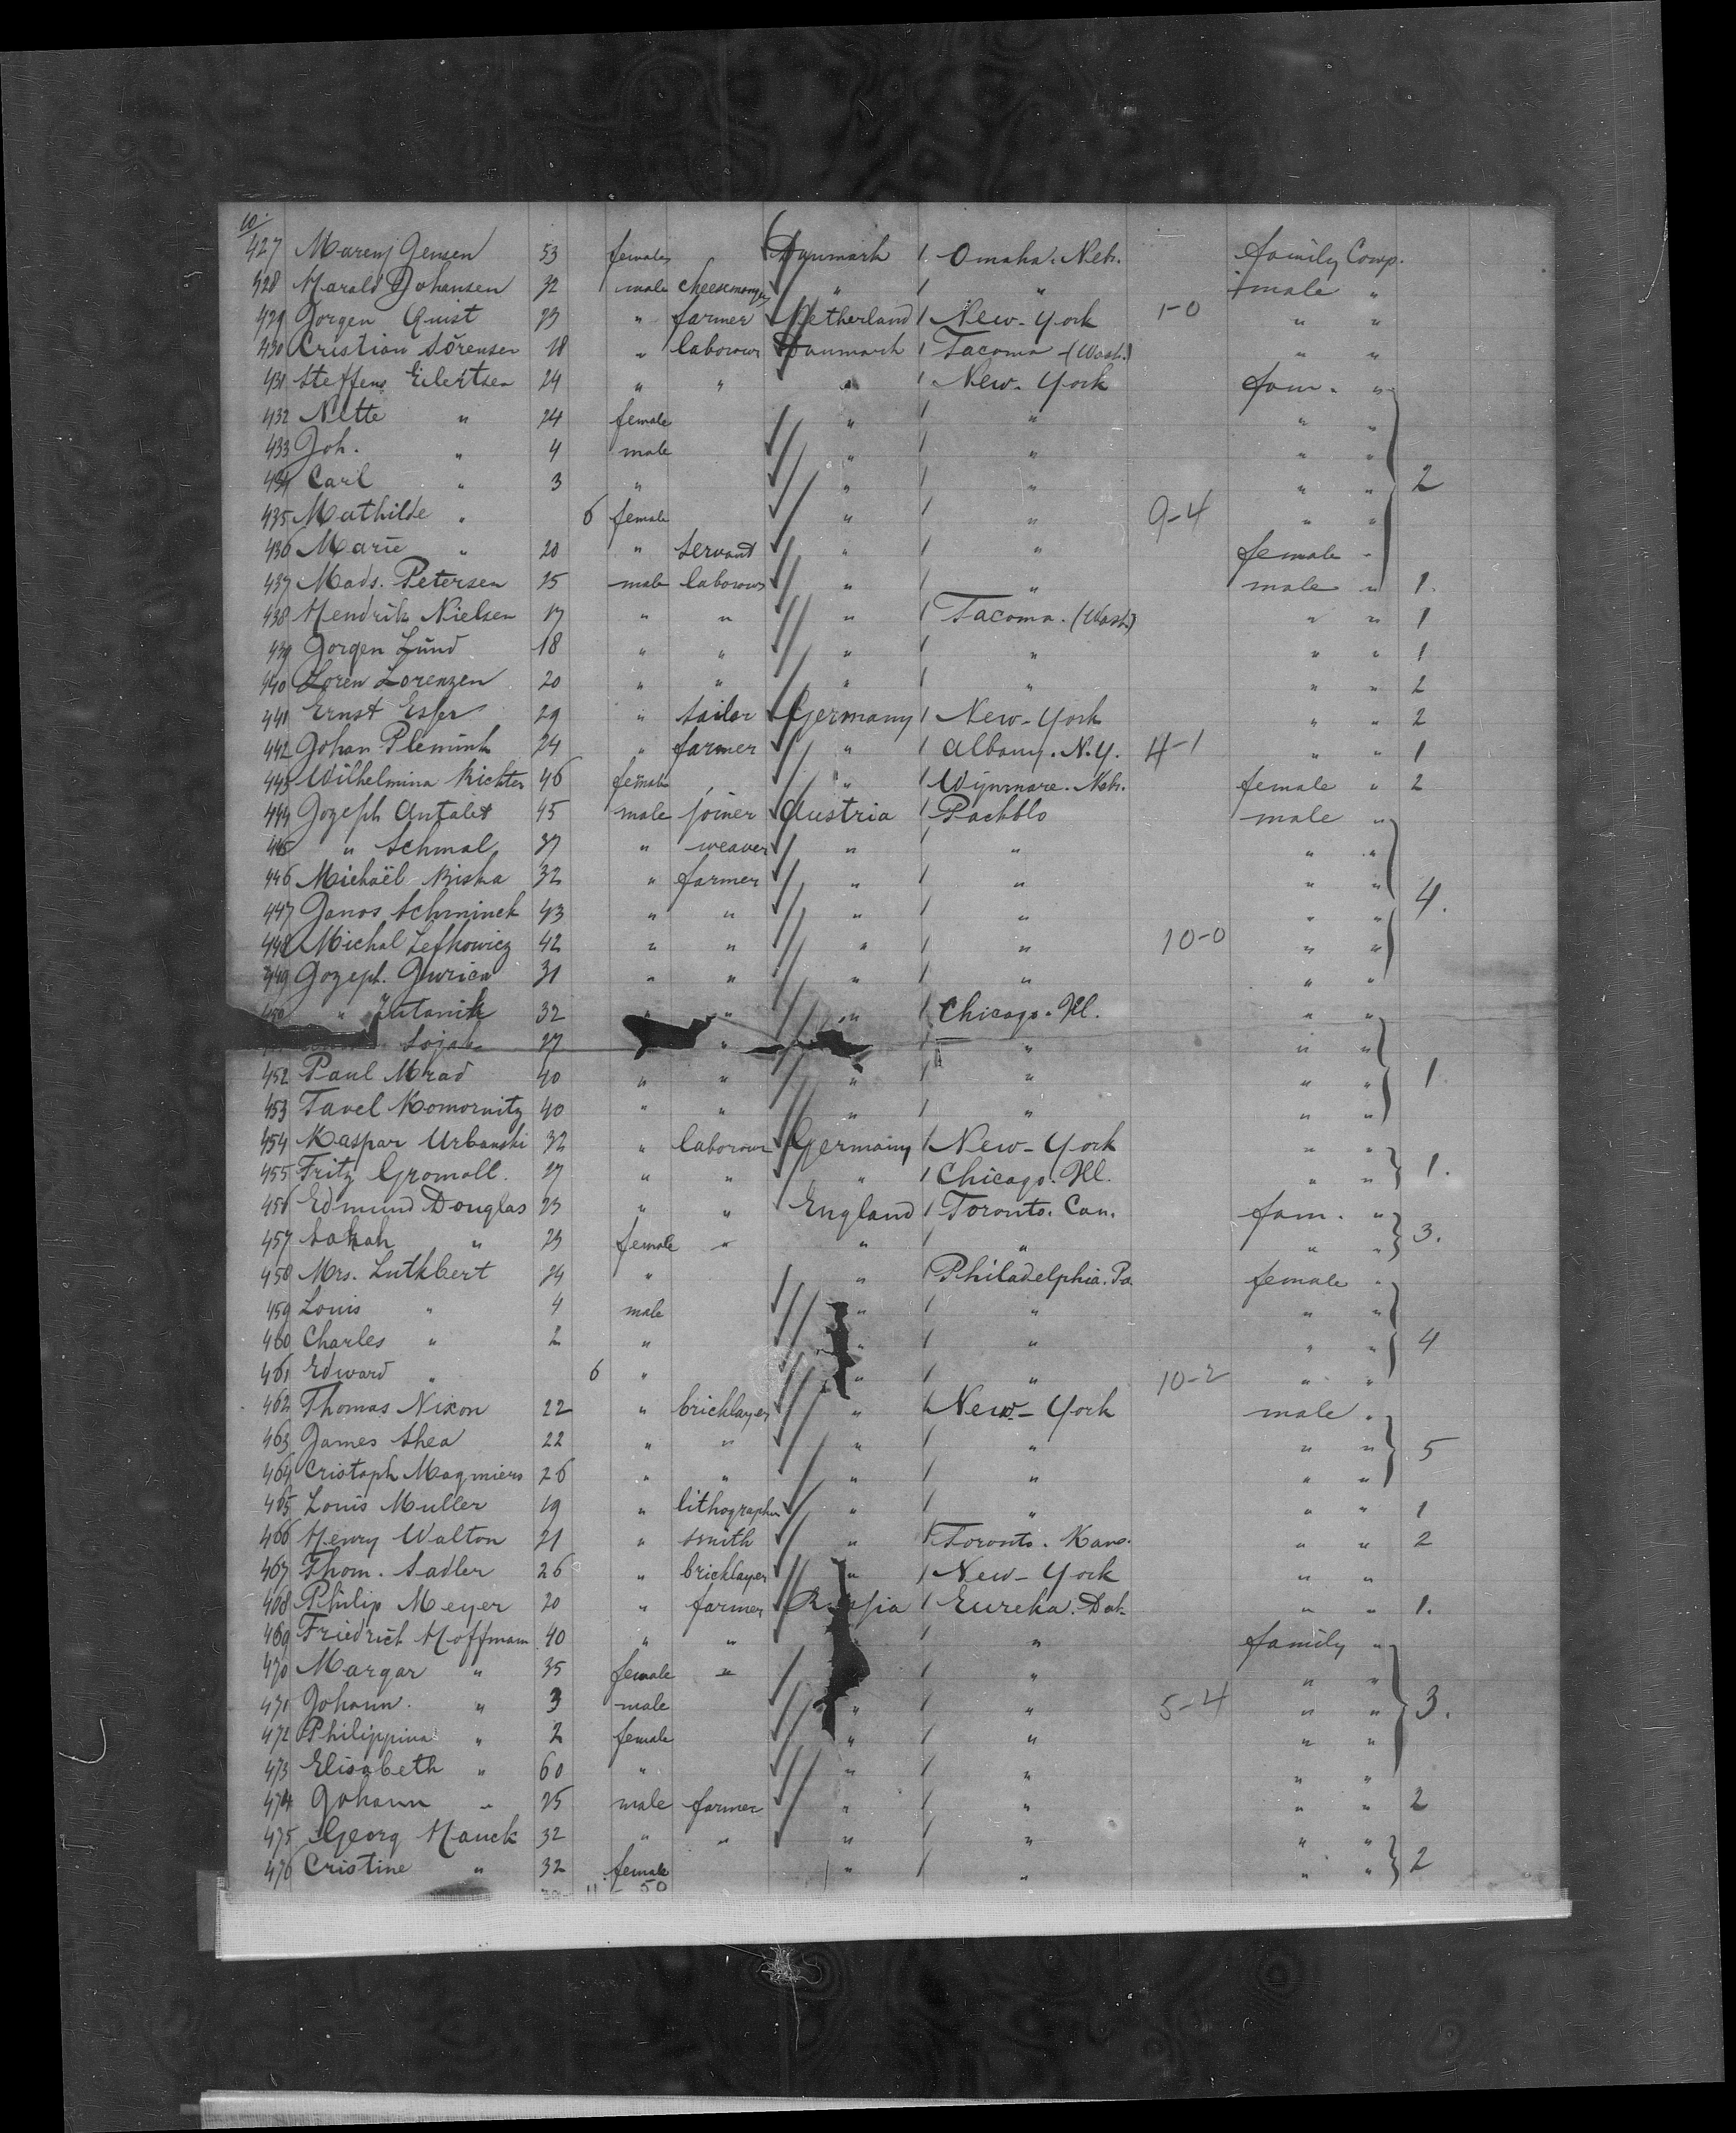 10.
427 Marenj Jensen 53 female " Dänmark / Omaha. Neb. family Comp.
428 Harald Johansen 32 male cheesemonger " / " male "
429 Jorgen Quist 23 " farmer Netherland / New-York 1-0 " "
430 Cristian Sörensen 18 " laborour Danmark / Tacoma (Wash.) " "
431 Steffens Eilertsen 24 " " " / New-York fam. "
432 Nette " 24 female " / " " "
433 Joh. " 4 male " / " " "
434 Carl " 3 " " / " " " 2
435 Mathilde " 6 female " / " 9-4 " "
436 Marie " 20 " servant " / " female "
437 Mads. Petersen 25 male laborour " / " male " 1.
438 Hendrik Nielsen 17 " " " / Tacoma. (Wash.) " " 1
439 Jorgen Lund 18 " " " / " " " 1
440 Loren Lorenzen 20 " " " / " " " 2
441 Ernst Esser 29 " tailor Germany / New-York " " 2
442 Johan Plemink 24 " farmer " / Albany. N.Y. 4-1 " " 1
443 Wilhelmina Richter 46 female " / Wijnmore. Neb. female " 2
444 Jozeph Antalet 45 male joiner Austria / Pachblo male "
445 " Schmal 37 " weaver " " " "
446 Michaël Riska 32 " farmer " / " " "
447 Janos Schminck 43 " " " / " " " 4.
448 Michal Lefkowicz 42 " " " / " 10-0 " "
449 Jozeph. Gwrica 31 " " " / " " "
450 " Jutanik 32 " " " / Chicago. Ill. " "
Sojak 27 " / " " "
452 Paul Mrad 40 " " " / " " " 1.
453 Tavel Komornitz 40 " " " / " " "
454 Kaspar Urbanski 32 " laborour Germany / New-York " "
455 Fritz Gromoll. 27 " " " / Chicago. Ill. " " 1.
456 Edmund Douglas 23 " " England / Toronto. Can. fam. "
457 Sarah " 23 female " " / " " " 3.
458 Mrs. Luthbert 24 " " Philadelphia. Pa. female "
459 Louis " 4 male " / " " "
460 Charles " 2 " " / " " " 4
461 Edward " 6 " " / " 10-2 " "
462 Thomas Nixon 22 " bricklayer " New-York male "
463 James Shea 22 " " " / " " " 5
464 Cristoph Magmiers 26 " " " / " " "
465 Louis Muller 19 " lithographer " / " " " 1
466 Henry Walton 21 " smith " / Toronto. Kans. " " 2
467 Thom. Sadler 26 " bricklayer " / New-York " "
468 Philip Meyer 20 " farmer Russia / Eureka. Dak. " " 1.
469 Friedrich Hoffmann 40 " " / " family "
470 Margar " 35 female " / " " "
471 Johann. " 3 male " / " 5-4 " " 3.
472 Philippina " 2 female " / " " "
473 Elisabeth " 60 " " / " " "
474 Johann " 25 male farmer " / " " " 2
475 Georg Hauck 32 " " " / " " "
476 Cristine " 32 female " / " " " 2
11 50